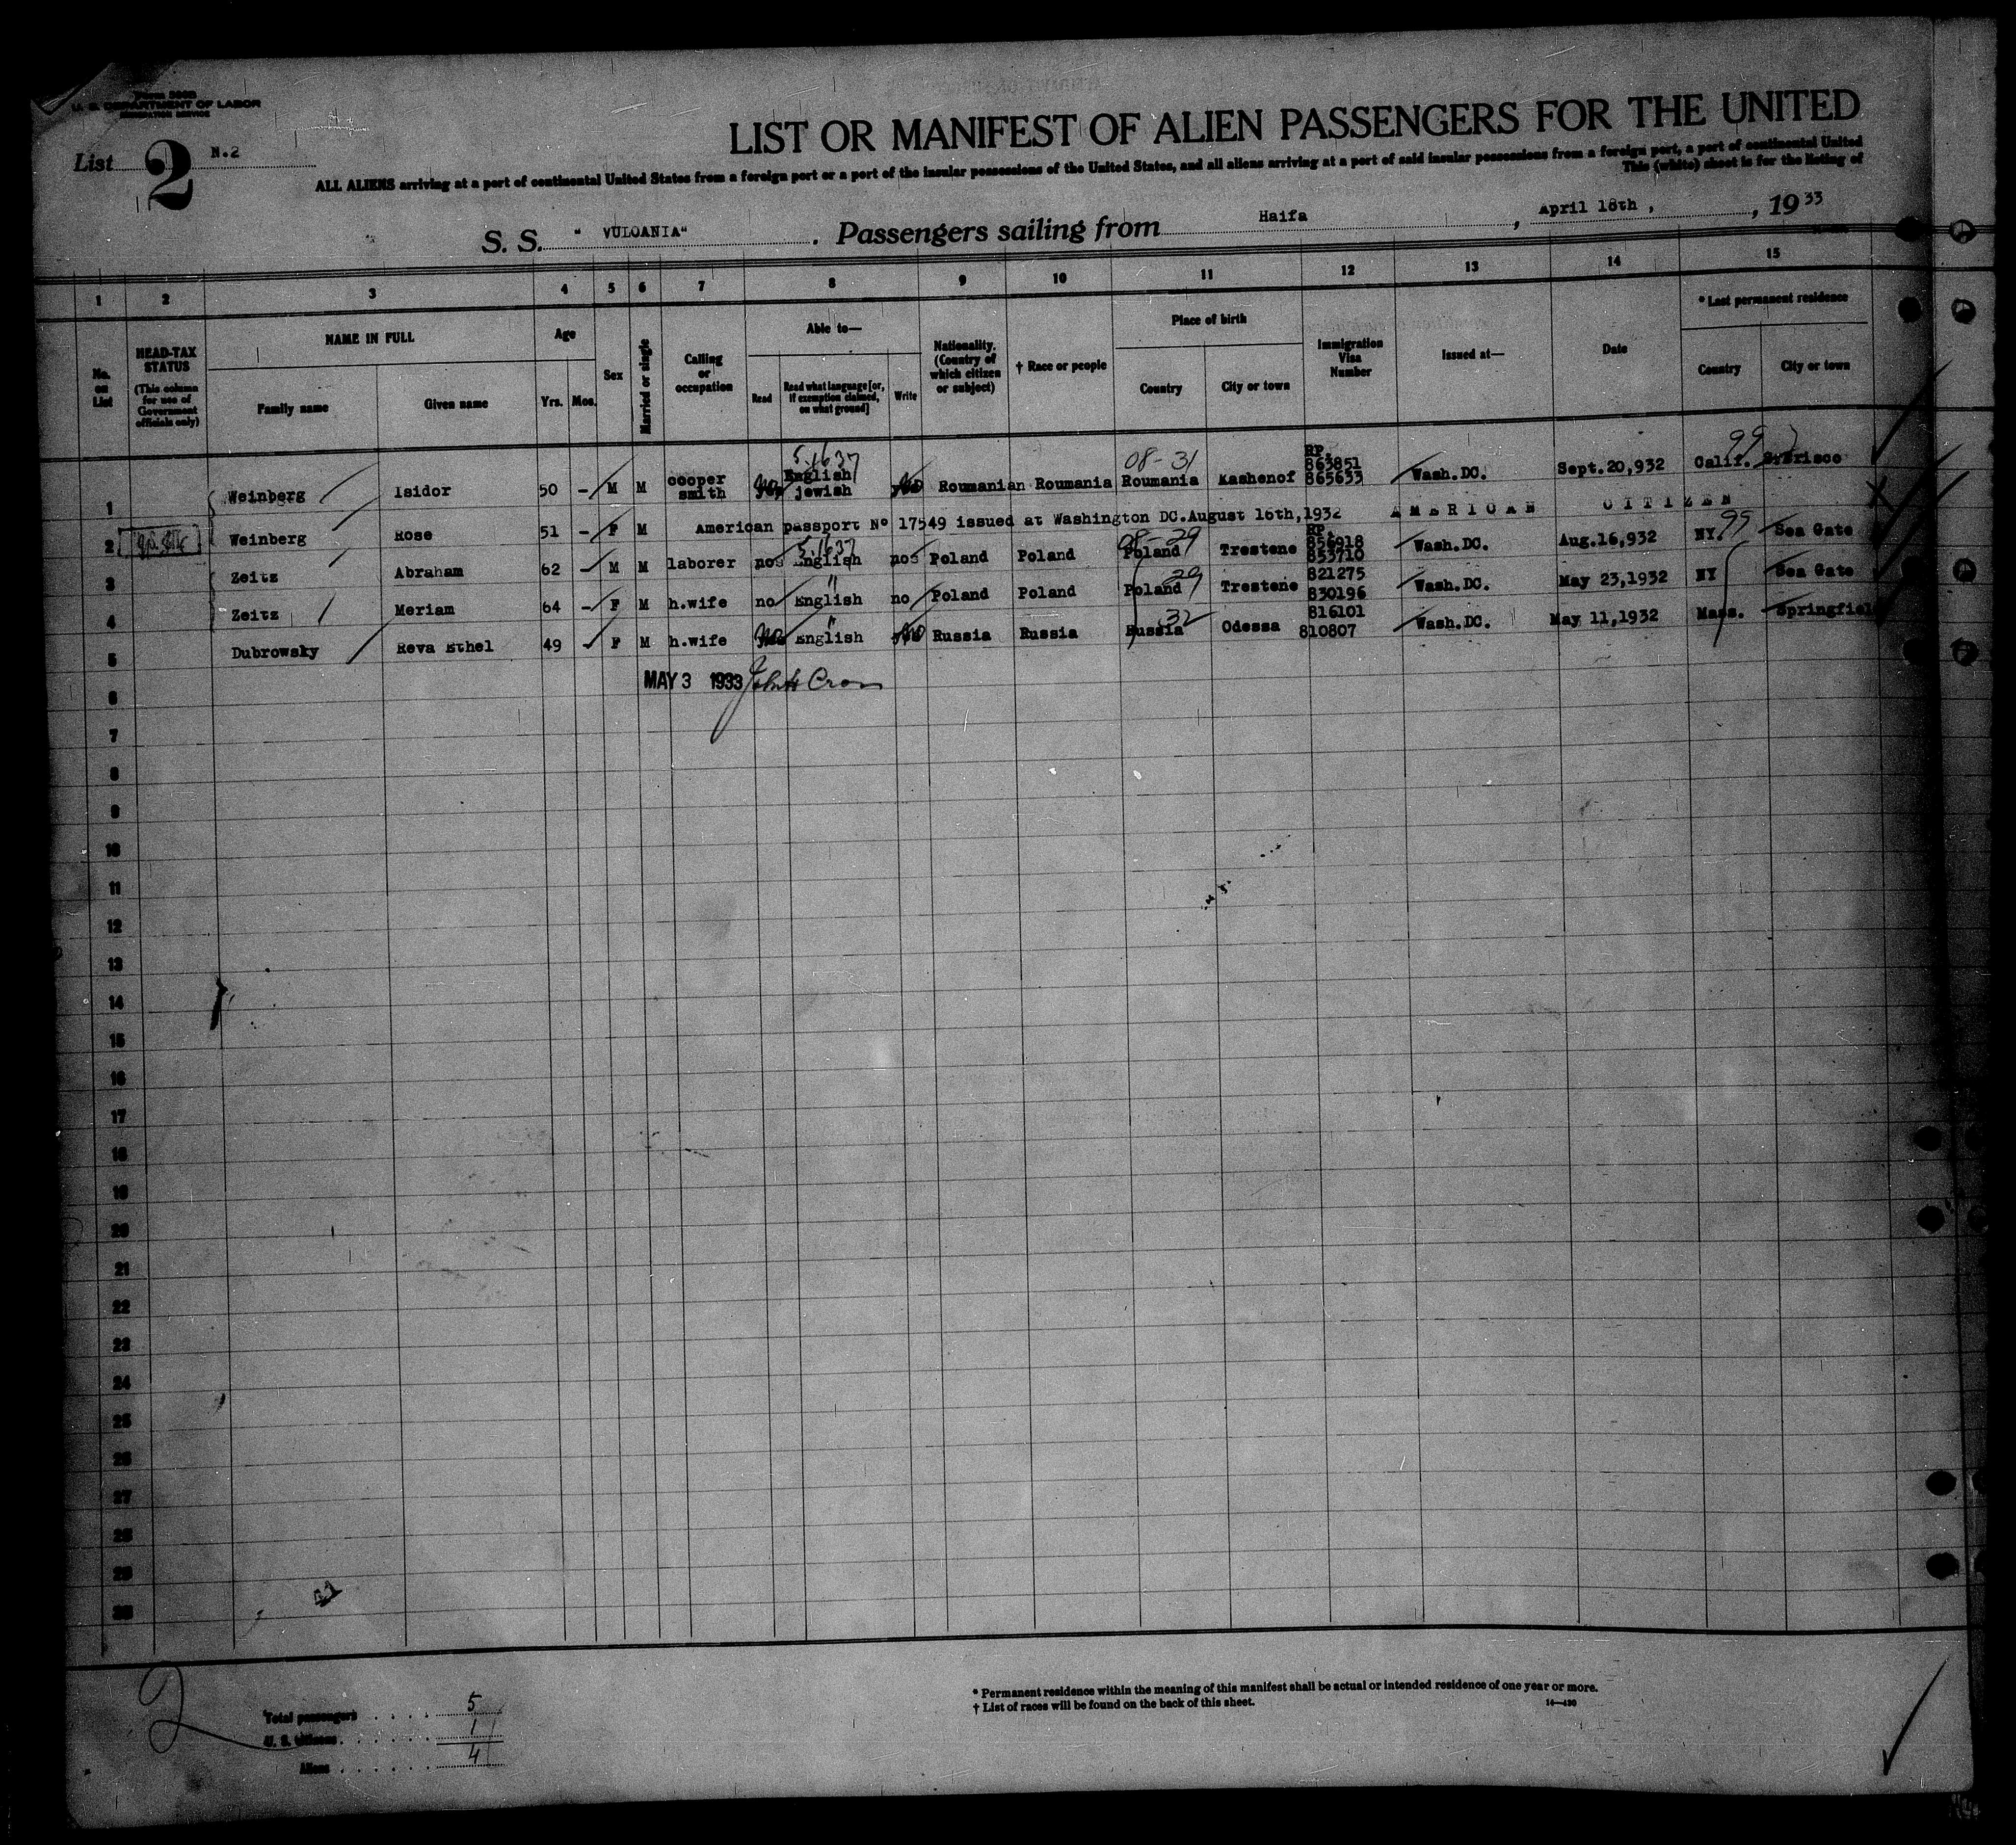 Form 500B
U. S. DEPARTMENT OF LABOR
IMMIGRATION SERVICE
List 2 N.2
LIST OR MANIFEST OF ALIEN PASSENGERS FOR THE UNITED
ALL ALIENS arriving at a port of continental United States from a foreign port or a port of the insular possessions of the United States, and all aliens arriving at a port of said insular possessions from a foreign port, a port of continental United
This (white) sheet is for the listing of
S. S. " VULCANIA" . Passengers sailing from Haifa , April 18th , , 19 33
1 2 3 4 5 6 7 8 9 10 11 12 13 14 15
No. on List
HEAD-TAX STATUS (This column for use of Government officials only)
NAME IN FULL
Family name
Given name
Age
Yrs. Mos.
Sex
Married or single
Calling or occupation
Able to—
Read
Read what language [or, if exemption claimed, on what ground]
Write
Nationality. (Country of which citizen or subject)
† Race or people
Place of birth
Country
City or town
Immigration Visa Number
Issued at—
Date
* Last permanent residence
Country
City or town
5.1637 08-31 RP. 99
1 Weinberg Isidor 50 - M M cooper smith English jewish Roumanian Roumania Roumania Kashenof 863851 865653 Wash.DC. Sept.20,932 Calif. S.Frisco
2 Weinberg Rose 51 - F M American passport Nº 17549 issued at Washington DC.August 16th,1932 AMERICAN CITIZEN
5.1637 08-29 RP. 99
3 Zeitz Abraham 62 - M M laborer no English no Poland Poland Poland Trestene 856918 853710 Wash.DC. Aug.16,932 NY. Sea Gate
" 29
4 Zeitz Meriam 64 - F M h.wife no English no Poland Poland Poland Trestene 821275 830196 Wash.DC. May 23,1932 NY Sea Gate
" 32
5 Dubrowsky Reva Ethel 49 - F M h.wife No English No Russia Russia Russia Odessa 816101 810807 Wash.DC. May 11,1932 Mass. Springfield
6 MAY 3 1933
7
8
9
10
11
12
13
14
15
16
17
18
19
20
21
22
23
24
25
26
27
28
29
30
2
Total passengers . . . . 5
U. S. citizens . . . . . . 1
Aliens . . . . . . 4
* Permanent residence within the meaning of this manifest shall be actual or intended residence of one year or more.
† List of races will be found on the back of this sheet. 14—430